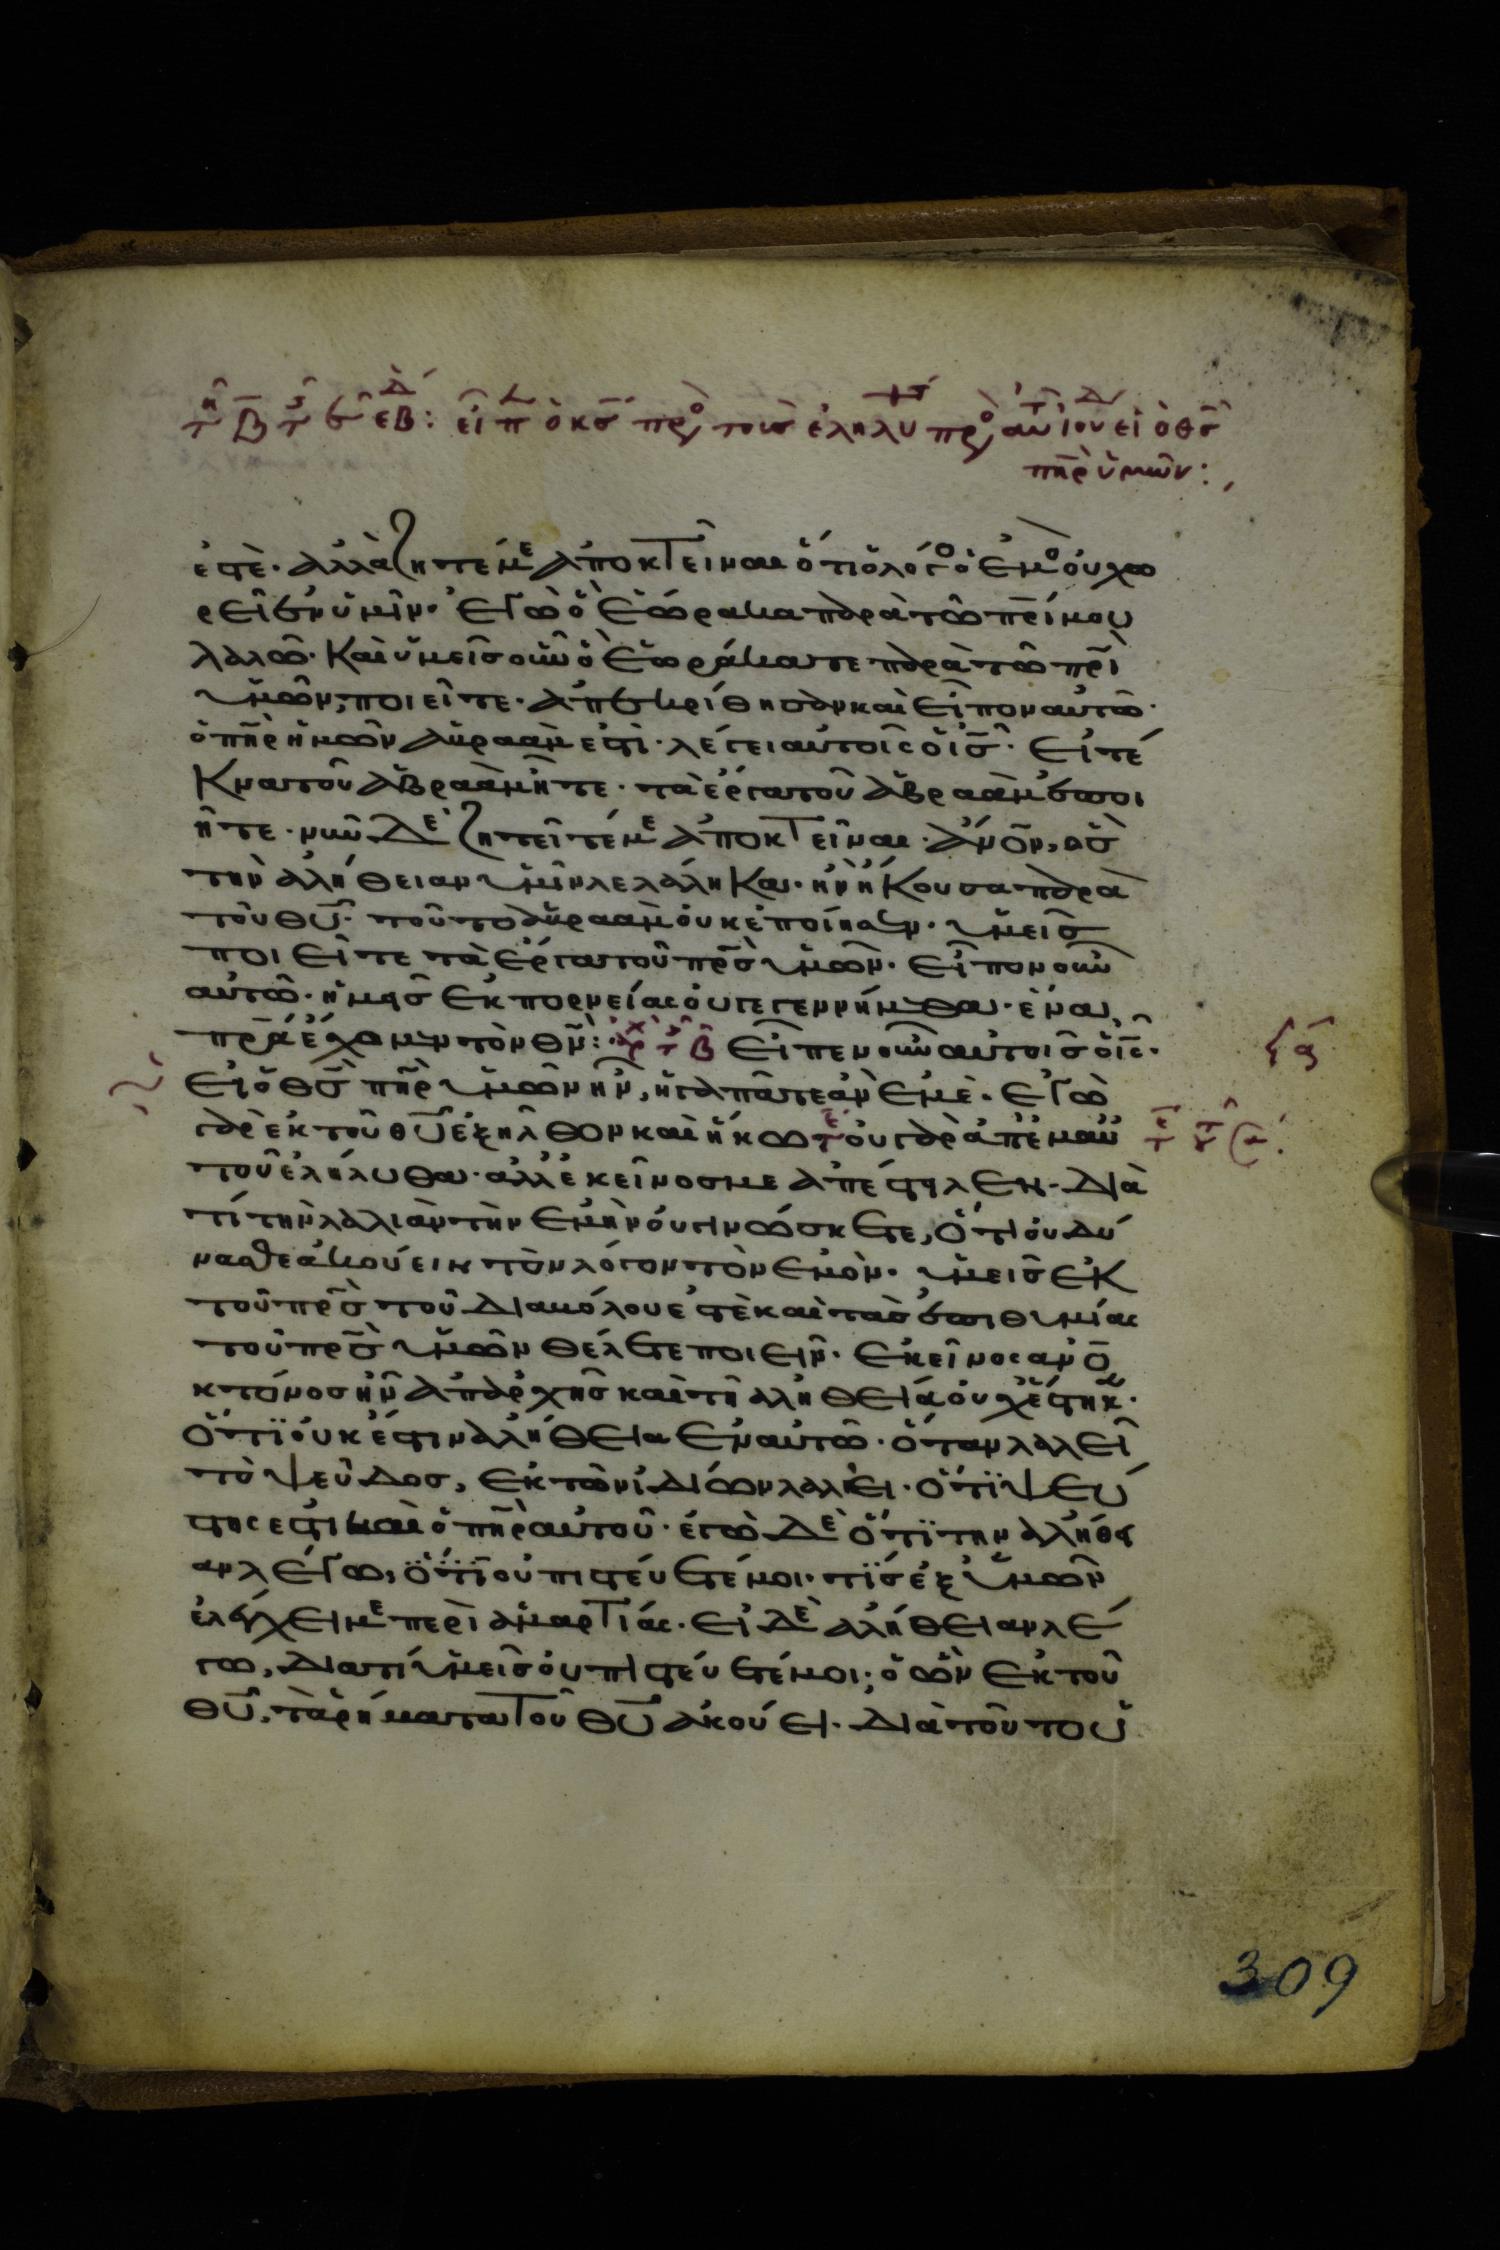 τῆ β τῆς ϛ ἑβδ: εἶπ ὁ κς πρὸς τοὺς ἐληλυ πρὸς αὐ ἰου εἰ ὁ θς
πηρ ὑμῶν:
ἐστὲ· ἀλλὰ ζητεῖτέ με ἀποκτεῖναι ὅτι ὁ λόγος ὁ ἐμὸς οὐ χω
ρεῖ ἐν ὑμῖν· ἐγὼ ὃ ἑώρακα παρὰ τῶ πρί μου
λαλῶ· καὶ ὑμεῖς οὖν ὃ ἑωράκατε παρὰ τῶ πρὶ
ὑμῶν, ποιεῖτε· ἀπεκρίθησαν καὶ εἶπον αὐτῶ·
ὁ πηρ ἡμῶν ἀβραάμ ἐστὶ· λέγει αὐτοῖς ὁ ις· εἰ τέ
κνα τοῦ ἀβραὰμ ἦτε· τὰ ἔργα τοῦ ἀβραὰμ ἐποι
ῆτε· νῦν δὲ ζητεῖτέ με ἀποκτεῖναι· ἄνον, ὃς
τὴν ἀλήθειαν ὑμῖν λελάληκα· ἣν ἤκουσα παρὰ
τοῦ θυ· τοῦτο ἀβραὰμ οὐκ ἐποίησεν· ὑμεῖς
ποιεῖτε τὰ ἔργα τοῦ πρς ὑμῶν· εἶπον οὖν
αὐτῶ· ἡμεῖς ἐκ πορνείας οὐ γεγεννήμεθα· ἕνα
πρα ἔχομεν τὸν θν: εἶπεν οὖν αὐτοῖς ὁ ις·
εἰ ὁ θς πηρ ὑμῶν ἦν, ἠγαπᾶτε ἂν ἐμέ· ἐγὼ
γὰρ ἐκ τοῦ θυ ἐξῆλθον καὶ ἥκω· οὐ γὰρ ἀπ ἐμαυ
τοῦ ἐλήλυθα· ἀλλ ἐκεῖνος με ἀπέστειλεν· διὰ
τί τὴν λαλιὰν τὴν ἐμὴν οὐ γινώσκετε, ὅτι οὐ δύ
νασθε ἀκούειν τὸν λόγον τὸν ἐμόν· ὑμεῖς ἐκ
τοῦ πρς τοῦ διαβόλου ἐστὲ καὶ τὰς ἐπιθυμίας
τοῦ πρς ὑμῶν θέλετε ποιεῖν· ἐκεῖνος ἀνο
κτόνος ἦν ἀπ ἀρχῆς καὶ τῆ ἀληθεία οὐχ ἕστηκεν·
ὅτι οὐκ ἔστιν ἀλήθεια ἐν αὐτῶ· ὅταν λαλεῖ
τὸ ψεῦδος, ἐκ τῶν ἰδίων λαλεῖ· ὅτι ψεύ
στης ἐστὶ καὶ ὁ πηρ αὐτοῦ· ἐγὼ δὲ ὅτι τὴν ἀλήθει
αν λέγω, ὅτι οὐ πιστεύετέ μοι· τίς ἐξ ὑμῶν
ἐλέγχει με περὶ ἁμαρτίας· εἰ δὲ ἀλήθειαν λέ
γω, διατί ὑμεῖς οὐ πιστεύετέ μοι; ὁ ὢν ἐκ τοῦ
θυ, τὰ ῥήματα τοῦ θυ ἀκούει· διὰ τοῦτο ὑ
309